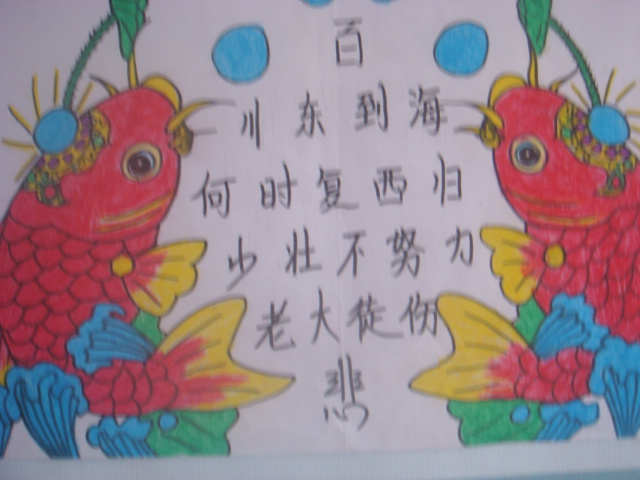 百
川东到海
何时复西归
少壮不努力
老大徒伤
悲